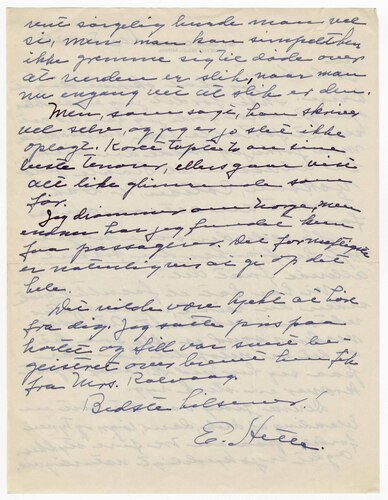 vist sørgelig burde man vel
si, men man kan simpelthen
ikke gremme sig til døde over
at verden er slik, naar man
nu engang vet at slik er den.
Men, som sagt, han skriver
vel selv, og jeg er jo slet ikke
oplagt. Koret tapte to av sine
beste tenorer, ellers gaar visst
alt like glimrende som
før.
Jeg drømmer om Norge, men
endnu har jeg fundet kun
faa passagerer. Det fornuftigste
er naturligvis at gi op det
hele.
Det vilde være kjekt at høre
fra dig. Jeg satte pris paa
kortet og Lill var svært be-
geistret over brevet hun fik
fra Mrs. Rolvaag.
Bedste hilsener!
E.